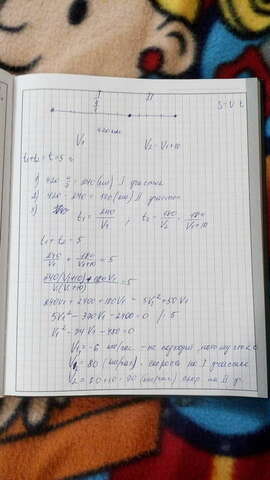 I II
4/7
420 км S=V·t
V₁ V₂=V₁+10
t₁+t₂=t=5 ч
1) 420·4/7=240(км) I участок
2) 420-240=180(км) II участок
3) t₁=240/V₁, t₂=180/V₂=180/V₁+10
t₁+t₂=5
240/V₁+180/V₁+10=5
240(V₁+10)+180V₁/V₁(V₁+10)=5
240V₁+2400+180V₁=5V₁²+50V₁
5V₁²-370V₁-2400=0 /:5
V₁²-74V₁-480=0
V₁=-6 км/час - не подходит,
V₁=80(км/час)-скорость на I участке
V₂=80+10=90(км/час) скор. на II у.